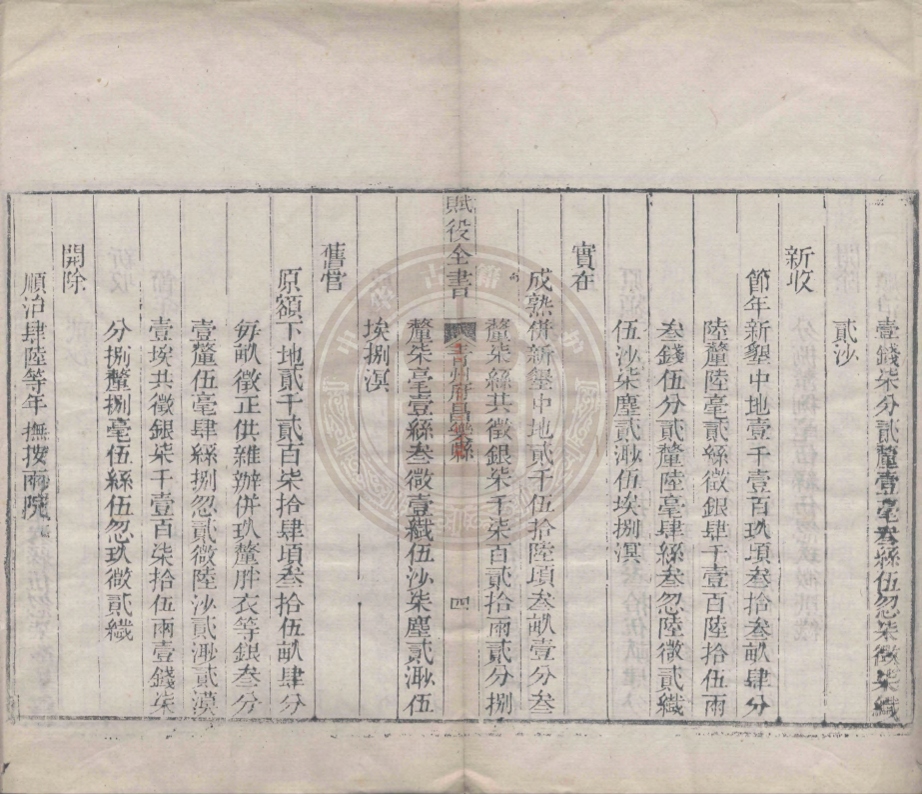 壹錢柒分貳釐壹毫叁絲伍忽柒微柒纖
貳沙
新收
節年新墾中地壹千壹百玖項叁拾叁畝肆分
陸釐陸毫貳絲徵銀肆千壹百陸拾伍兩
叁錢伍分貳釐陸毫肆絲叁忽陸微貳纖
伍沙柒塵貳渺伍埃捌溟
實在
成熟併新墾中地貳千伍拾陸項叁畝壹分叁
釐柒絲共徵銀柒千柒百貳拾兩貳分捌
釐柒毫壹絲叁微壹纖伍沙柒塵貳渺伍
埃捌溟
賦役全書
青州府昌樂縣
四
舊管
原額下地貳千貳百柒拾肆項叁拾伍畝肆分
每畝徵正供雜辦併玖釐胖衣等銀叁分
壹釐伍毫肆絲捌忽貳微陸沙貳渺貳漠
壹埃共徵銀柒千壹百柒拾伍兩壹錢柒
分捌釐捌毫伍絲伍忽玖微貳纖
開除
順治肆陸等年撫按兩院